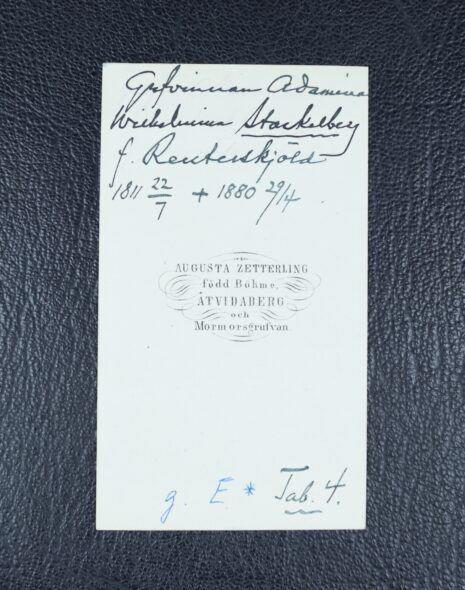 Grefvinnan Adamina
Wilhelmina Stackelberg
f. Reuterskjöld
1811 22/7 + 1880 29/4
AUGUSTA ZETTERLING
född Böhme.
ÅTVIDABERG
och
Mormorsgrufvan.
g. E * Tab. 4.